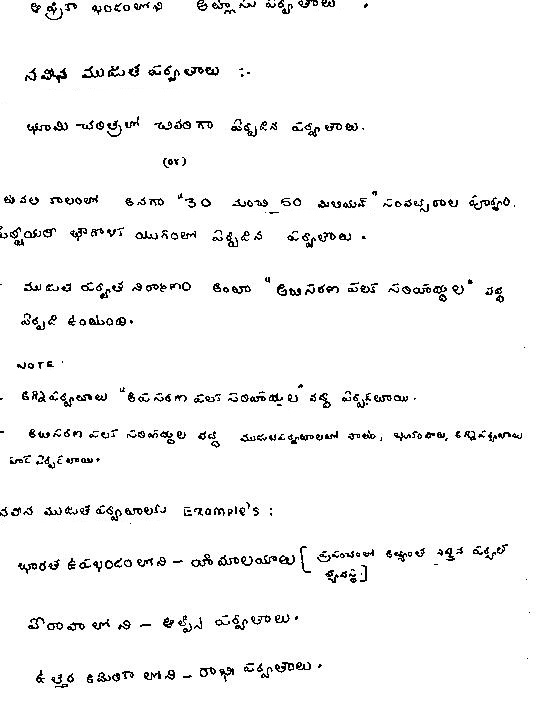 ఆఫ్రికా ఖండంలోని అట్లాసు పర్వతాలు .
నవీన ముడుత పర్వతాలు :-
భూమి చరిత్రలో చివరిగా ఏర్పడిన పర్వతాలు.
(or)
ఇటీవల కాలంలో అనగా "30 నుంచి 60 మిలియన్" సంవత్సరాల పూర్వం.
టెర్షియరీ భౌగోళిక యుగంలో ఏర్పడిన పర్వతాలు .
- ముడుత పర్వత నిర్మాణం అంటూ "అభిసరణ పలక సరిహద్దుల" వద్ద
ఏర్పడి ఉంటుంది.
NOTE
- అగ్నిపర్వతాలు "అపసరణ పలక సరిహద్దుల" వద్ద ఏర్పడతాయి.
- అభిసరణ పలక సరిహద్దుల వద్ద ముడుతపర్వతాలతో పాటు, భూకంపాలు, అగ్నిపర్వతాలు
కూడా ఏర్పడతాయి.
నవీన ముడుత పర్వతాలకు Example's :
భారత ఉపఖండంలోని - హిమాలయాలు [ ప్రపంచంలో అత్యంత ఎత్తైన పర్వత
వ్యవస్థ ]
ఐరోపా లోని - ఆల్ప్స్ పర్వతాలు.
ఉత్తర అమెరికా లోని - రాకీ పర్వతాలు.